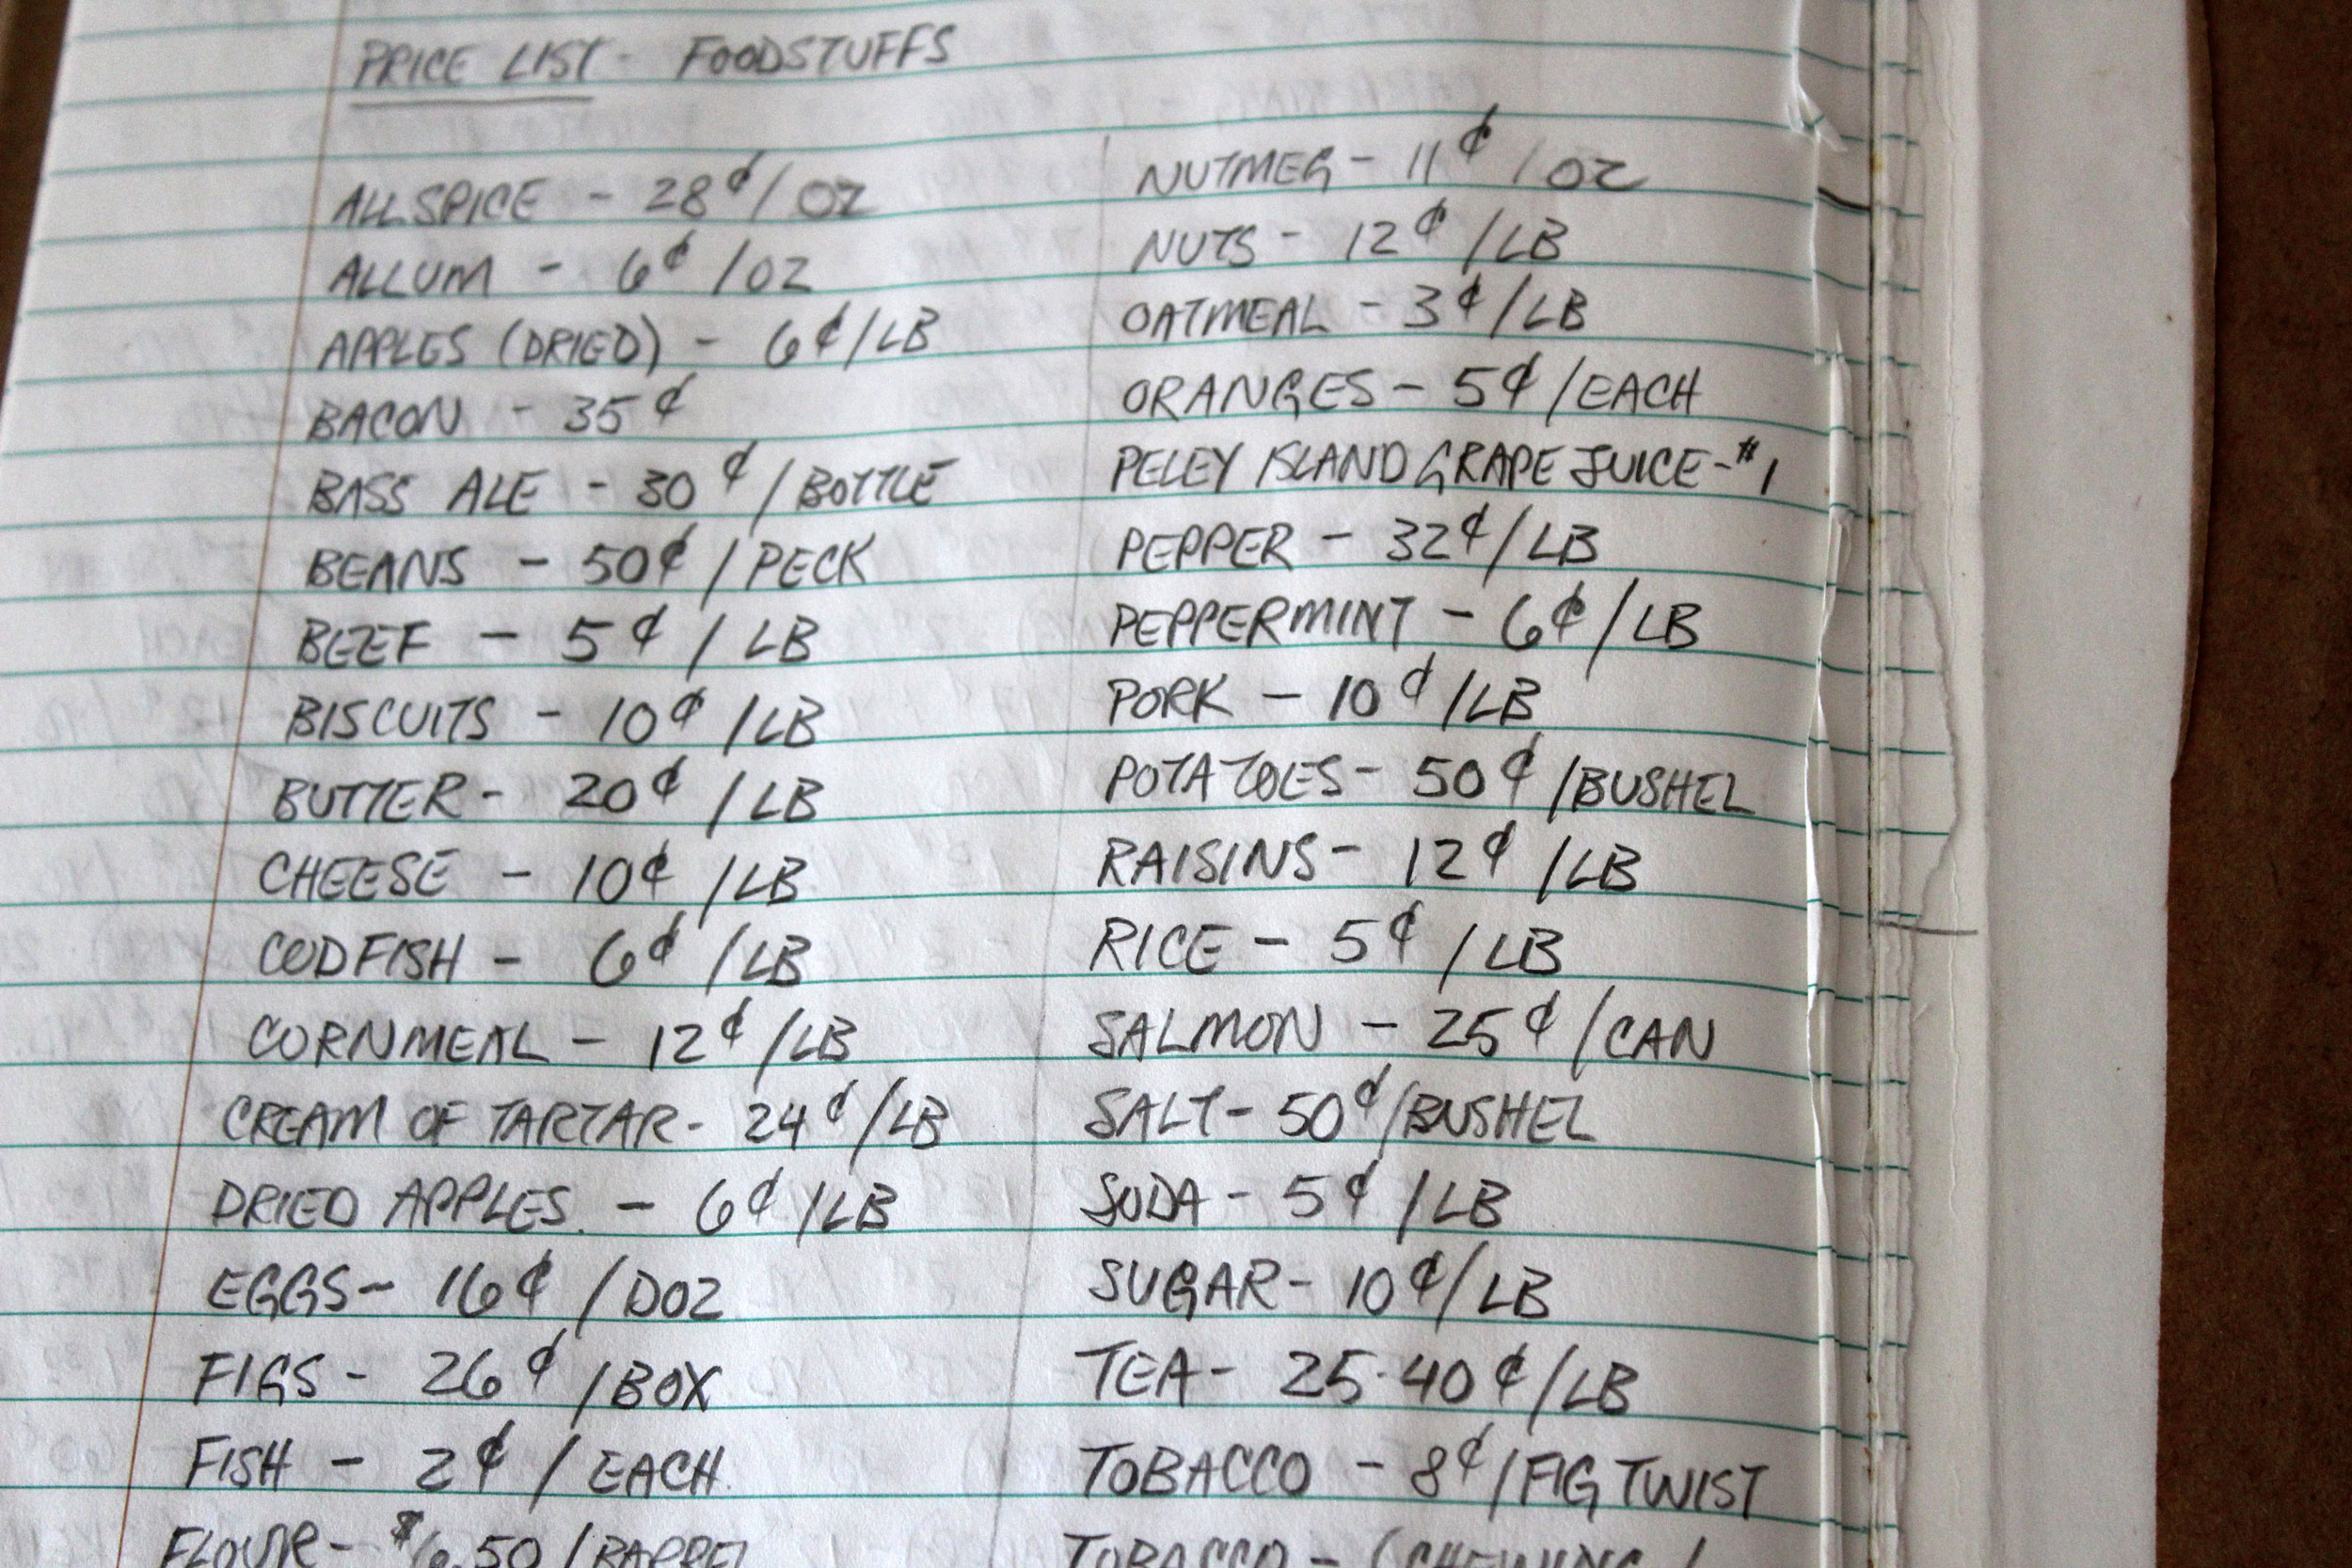 PRICE LIST - FOODSTUFFS
ALLSPICE - 28¢/OZ
ALLUM - 6¢/OZ
APPLES (DRIED) - 6¢/LB
BACON - 35¢
BASS ALE - 30¢/BOTTLE
BEANS - 50¢/PECK
BEEF - 5¢/LB
BISCUITS - 10¢/LB
BUTTER - 20¢/LB
CHEESE - 10¢/LB
CODFISH - 6¢/LB
CORNMEAL - 12¢/LB
CREAM OF TARTAR - 24¢/LB
DRIED APPLES. - 6¢/LB
EGGS - 16¢/DOZ
FIGS - 26¢/BOX
FISH - 2¢/EACH.
FLOUR - $6.50/BARREL
NUTMEG - 11¢/OZ
NUTS - 12¢/LB
OATMEAL - 3¢/LB
ORANGES - 5¢/EACH
PELEY ISLAND GRAPE JUICE - $1
PEPPER - 32¢/LB
PEPPERMINT - 6¢/LB
PORK - 10¢/LB
POTATOES - 50¢/BUSHEL
RAISINS - 12¢/LB
RICE - 5¢/LB
SALMON - 25¢/CAN
SALT - 50¢/BUSHEL
SODA - 5¢/LB
SUGAR - 10¢/LB
TEA - 25-40¢/LB
TOBACCO - 8¢/FIG TWIST
TOBACCO - (CHEWING)